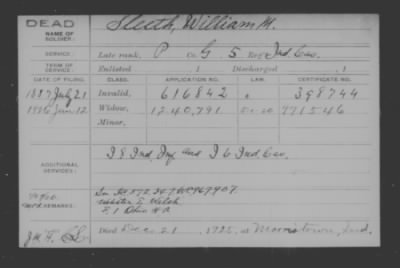 DEAD
NAME OF SOLDIER: Sleeth, William M.
SERVICE: Late rank, P Co. G 5 Reg't Ind. Cav.
TERM OF SERVICE: Enlisted , 1 Discharged , 1
DATE OF FILING. CLASS. APPLICATION NO. LAW. CERTIFICATE NO.
1887 July 21 Invalid, 616842 398744
1926 Jan 12 Widow, 1240,791 771546
Minor,
ADDITIONAL SERVICES: I 8 Ind. Inf. and I 6 Ind. Cav.
REMARKS:
F. 1 Ohio H A
Died Dec 21, 1925, at Morristown, Ind.